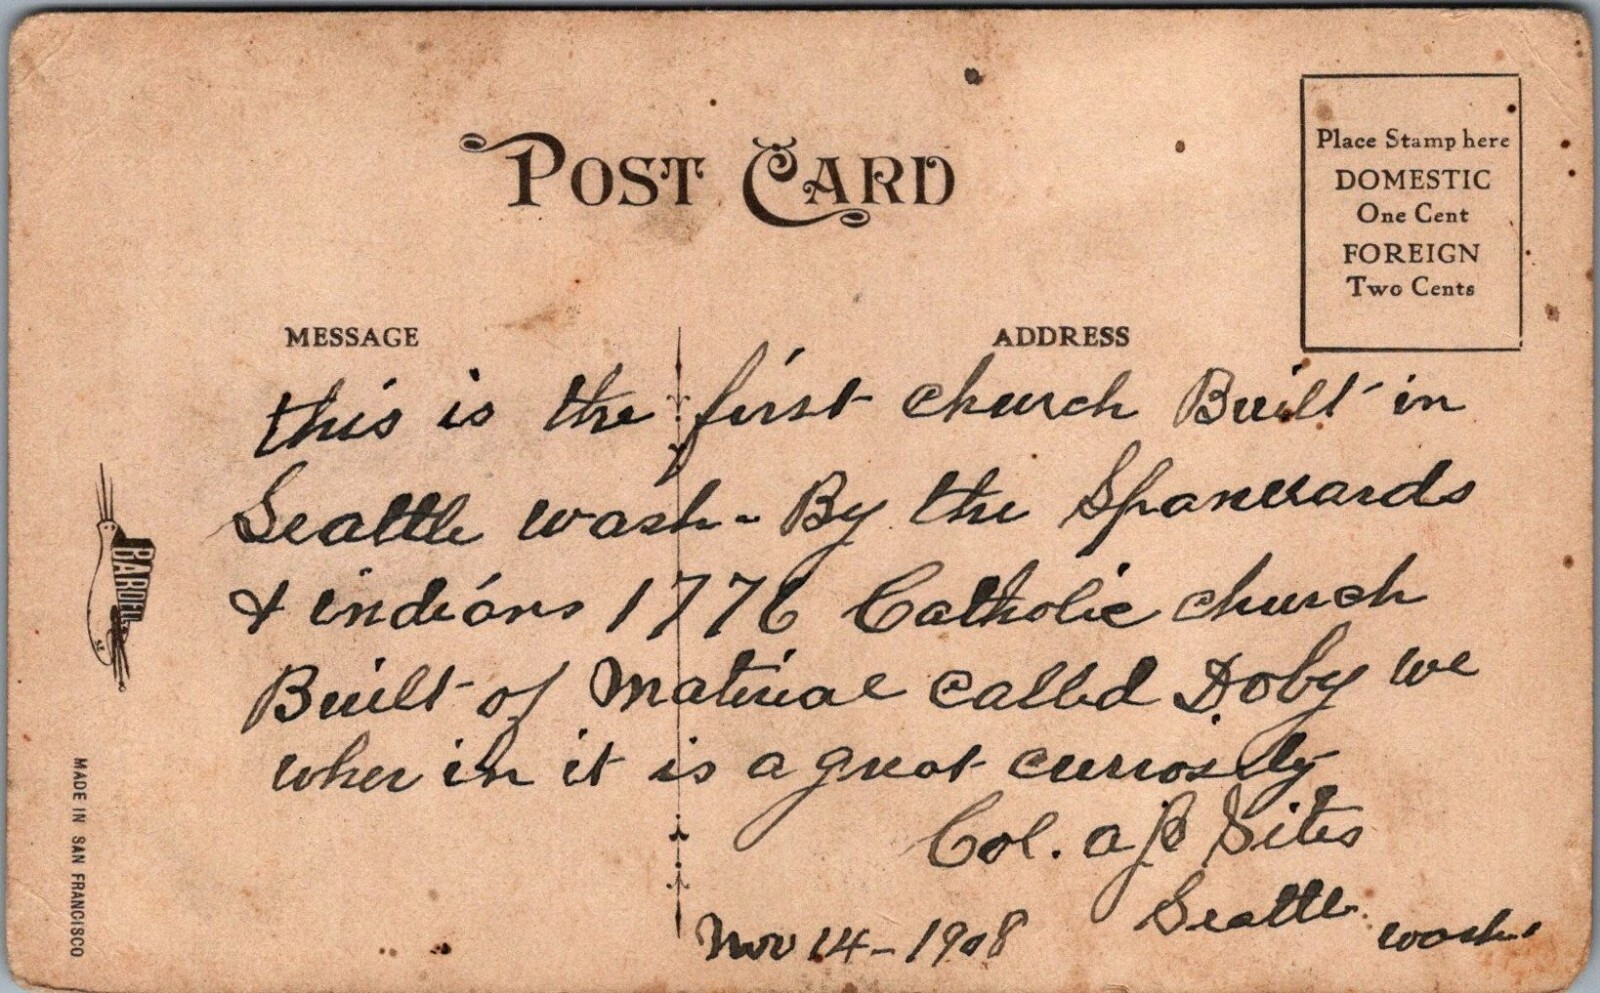 POST CARD
Place Stamp here
DOMESTIC
One Cent
FOREIGN
Two Cents
MESSAGE
ADDRESS
this is the first church Built in
Seattle wash - By the Spanuards
& indians 1776 Catholic church
Built of Material called Doby we
wher in it is a great curiosity
Col. a Sites
Seattle wash.
Nov 14 - 1908
BARDELL
SF
MADE IN SAN FRANCISCO